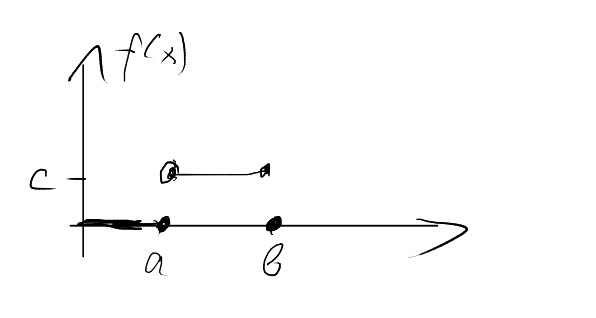 f(x)
c
a
b